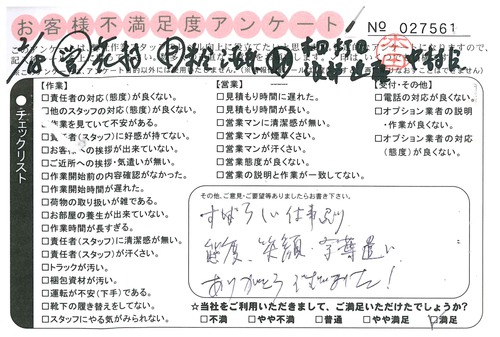 お客様不満足度アンケート
No 027561
チェックリスト
【作業】
□責任者の対応(態度)が良くない。
□他のスタッフの対応(態度)が良くない。
作業を見ていて不安がある。
(スタッフ)に好感が持てない。
□お客様への挨拶が出来ていない。
□ご近所への挨拶・気遣いが無い。
□作業開始前の内容確認がなかった。
□作業開始時間が遅れた。
□荷物の取り扱いが雑である。
□お部屋の養生が出来ていない。
□作業時間が長すぎる。
□責任者(スタッフ)に清潔感が無い。
□責任者(スタッフ)が汗くさい。
□トラックが汚い。
□梱包資材が汚い。
□運転が不安(下手)である。
□靴下の履き替えをしてない。
□スタッフにやる気がみられない。
【営業】
□見積もり時間に遅れた。
□見積もり時間が長い。
□営業マンに清潔感が無い。
□営業マンが煙草くさい。
□営業マンが汗くさい。
□営業態度が良くない。
□営業の説明と作業が一致してない。
【受付・その他】
□電話の対応が良くない。
□オプション業者の説明
・作業が良くない。
□オプション業者の対応
(態度)が良くない。
その他、ご意見・ご要望等ありましたらお書き下さい。
すばらしい仕事ぶり
態度、笑顔、言葉遣い、
ありがとうございました!
☆当社をご利用いただきまして、ご満足いただけたでしょうか?
□不満 □やや不満 □普通 □やや満足 □満足